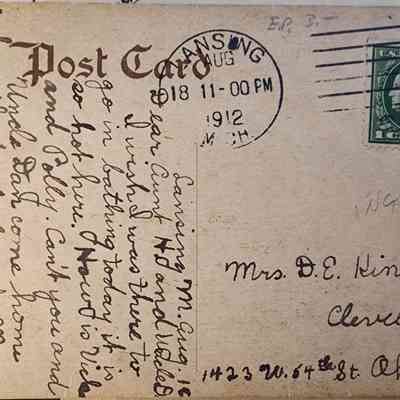 Post Card
LANSING
AUG
18 11-00 PM
1912
MICH.
E.P. 3.-
Lansing M. Aug 18
Dear Aunt
I wish I was there to
go in bathing today it is
so hot here. How is Vick
and Polly. Can't you and
Uncle Dan come home
Mrs. D.E. Kin
Cleve
1423 W. 54th St. Oh